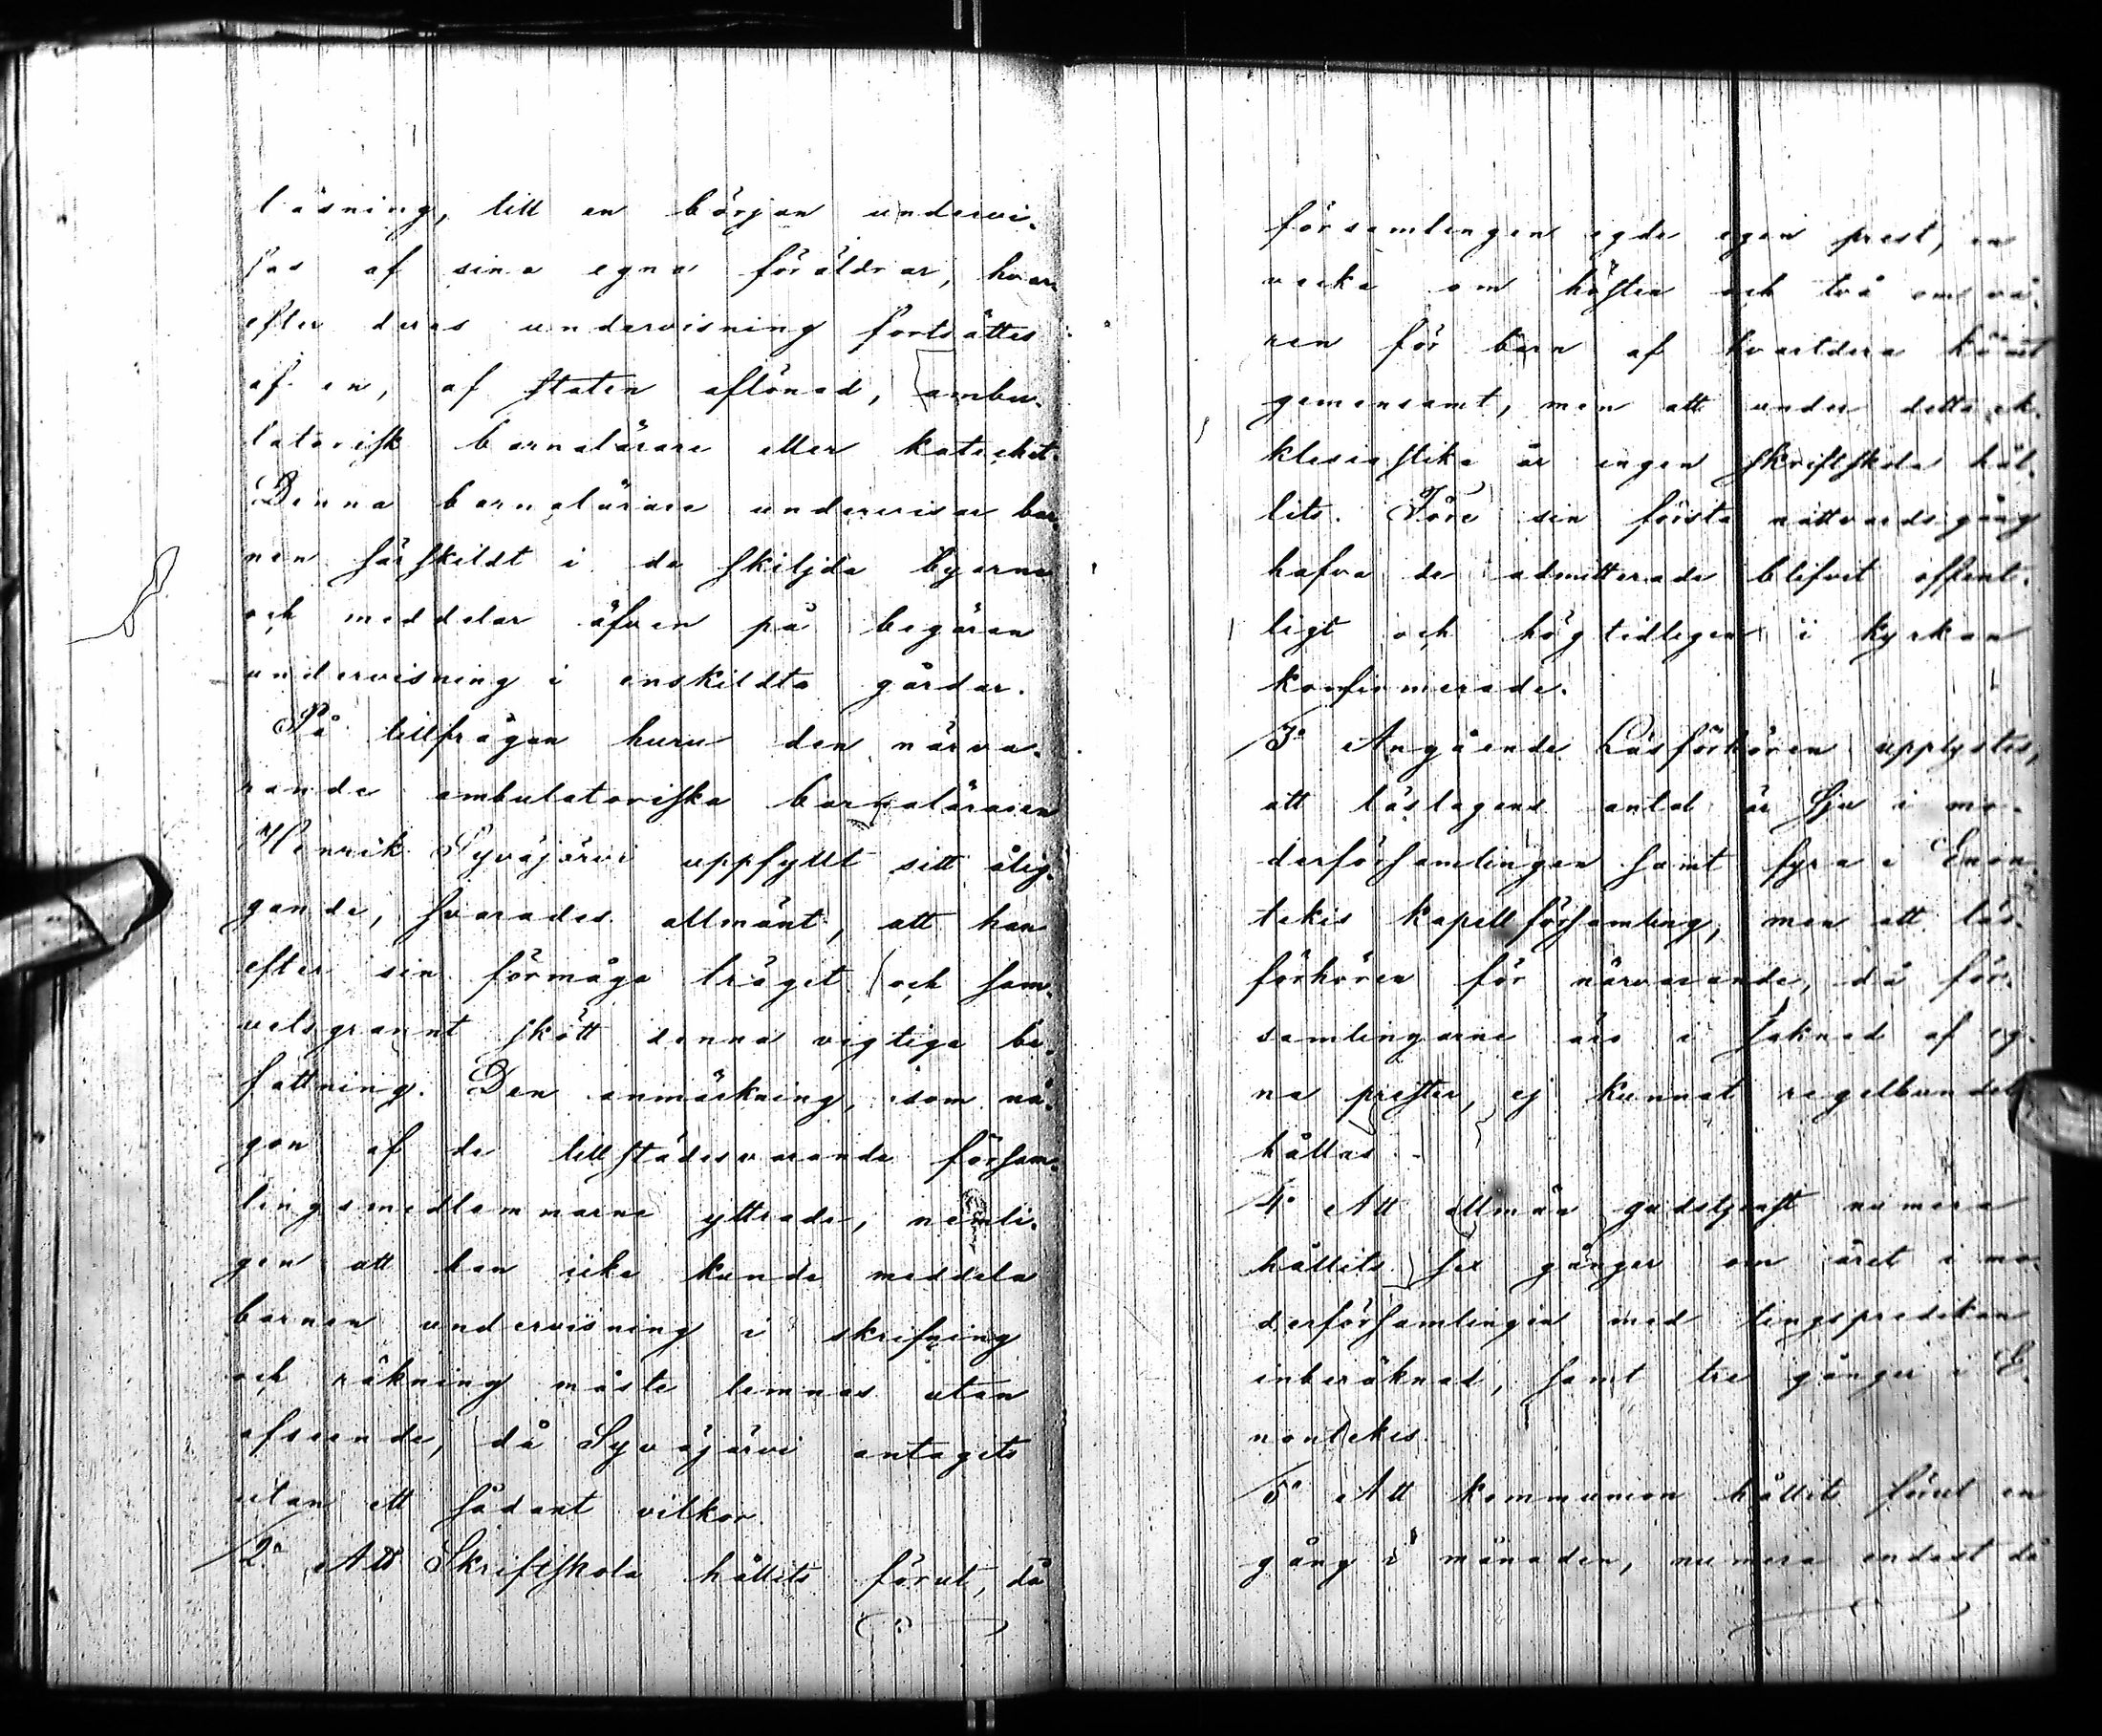 läsning, till en början undervi-
sas af sina egna föräldrar, hvar-
efter deras undervisning fortsättes
af en, af staten aflönad, ambu-
latorisk barnalärare eller katechet.
Denna barnalärare undervisar bar-
nen särskildt i de skiljda byarne
och meddelar äfven på begäran
undervisning i enskildta gårdar.
På tillfrågan huru den närva-
rande ambulatoriska barnaläraren
Henrik Syväjärvi uppfyllt sitt ålig-
gande, svarades allmänt, att han
efter sin förmåga träget och sam-
vetsgrannt skött denna vigtiga be-
fattning. Den anmärkning, som nå-
gon af de tillstädesvarande försam-
lingsmedlemmarne yttrade, nemli-
gen att han icke kunde meddela
barnen undervisning i skrifning
och räkning måste lemnas utan
afseende, då Syväjärvi antagits
utan ett sådant vilkor.
2o Att Skriftskola hållits förut, då
församlingen egde egen prest, en
vecka om hösten och två om vå-
ren för barn af hvartdera könet
gemensamt, men att under detta ek-
klesiastika år ingen skriftskola hål-
lits. Före sin första nattvardsgång
hafva de admitterade blifvit offent-
ligt och högtidligen i kyrkan
konfirmerade.
3o Angående Läsförhören upplystes,
att läslagens antal är sju i mo-
derförsamlingen samt fyra i Enon-
tekis kapellförsamling, men att läs-
förhören för närvarande, då för-
samlingarne äro i saknad af eg-
na prester, ej kunnat regelbundet
hållas.
4o Att allmän gudstjenst numera
hållits sex gånger om året i mo-
derförsamlingen med tingspredikan
inberäknad, samt tre gånger i E-
nontekis.
5o Att kommunion hållits förut en
gång i månaden, numera endast då